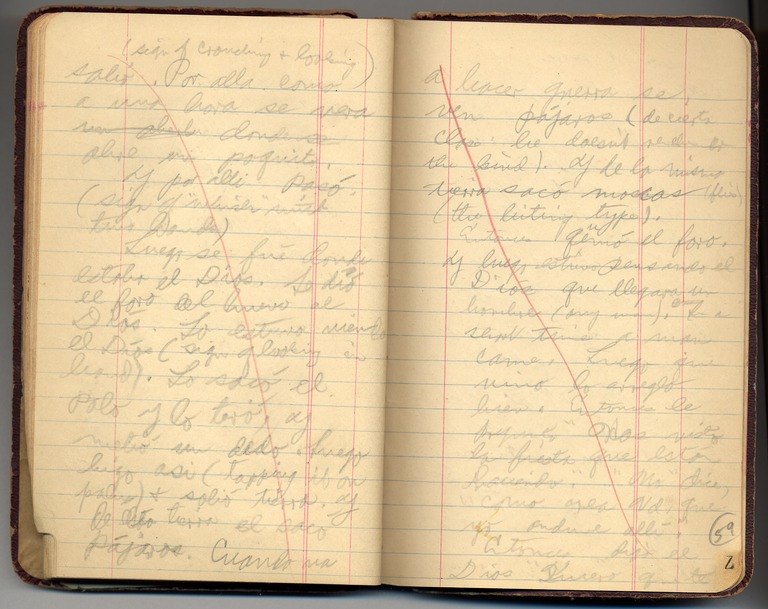 (sign of crouching + looking)
salió. Por alla como
a una hora se
donde se
abre un poquito.
Y por alli pasó.
(sign of with
two hands)
Luego se fué donde
estaba el Dios. Le dió
el foro de nuevo al
Dios. Lo estuvo viendo
el Dios (sign of looking in
hand). Lo sacó el
polo y lo tiró, y
metió un dedo. Luego
hizo asi (tapping it on
palm) + salió tierra. Y
de la tierra el sacó
pájaros. Cuando va
a hacer guerra se
ven pájaros (de cierta
clase: he doesn't
the kind). Y de la misma
tierra sacó moscas (flies)
(the biting type).
Entonces el foro.
Y luego estuvo pensando el
Dios que llegara un
hombre (any man).
came. Luego que
vino lo arregló
bien. Entonces le
preguntó "
la fiesta que está
haciendo". "No" dice,
"como que
yo anduve allí."
Entonces dijo el
Dios "Quiero que te
59
Z